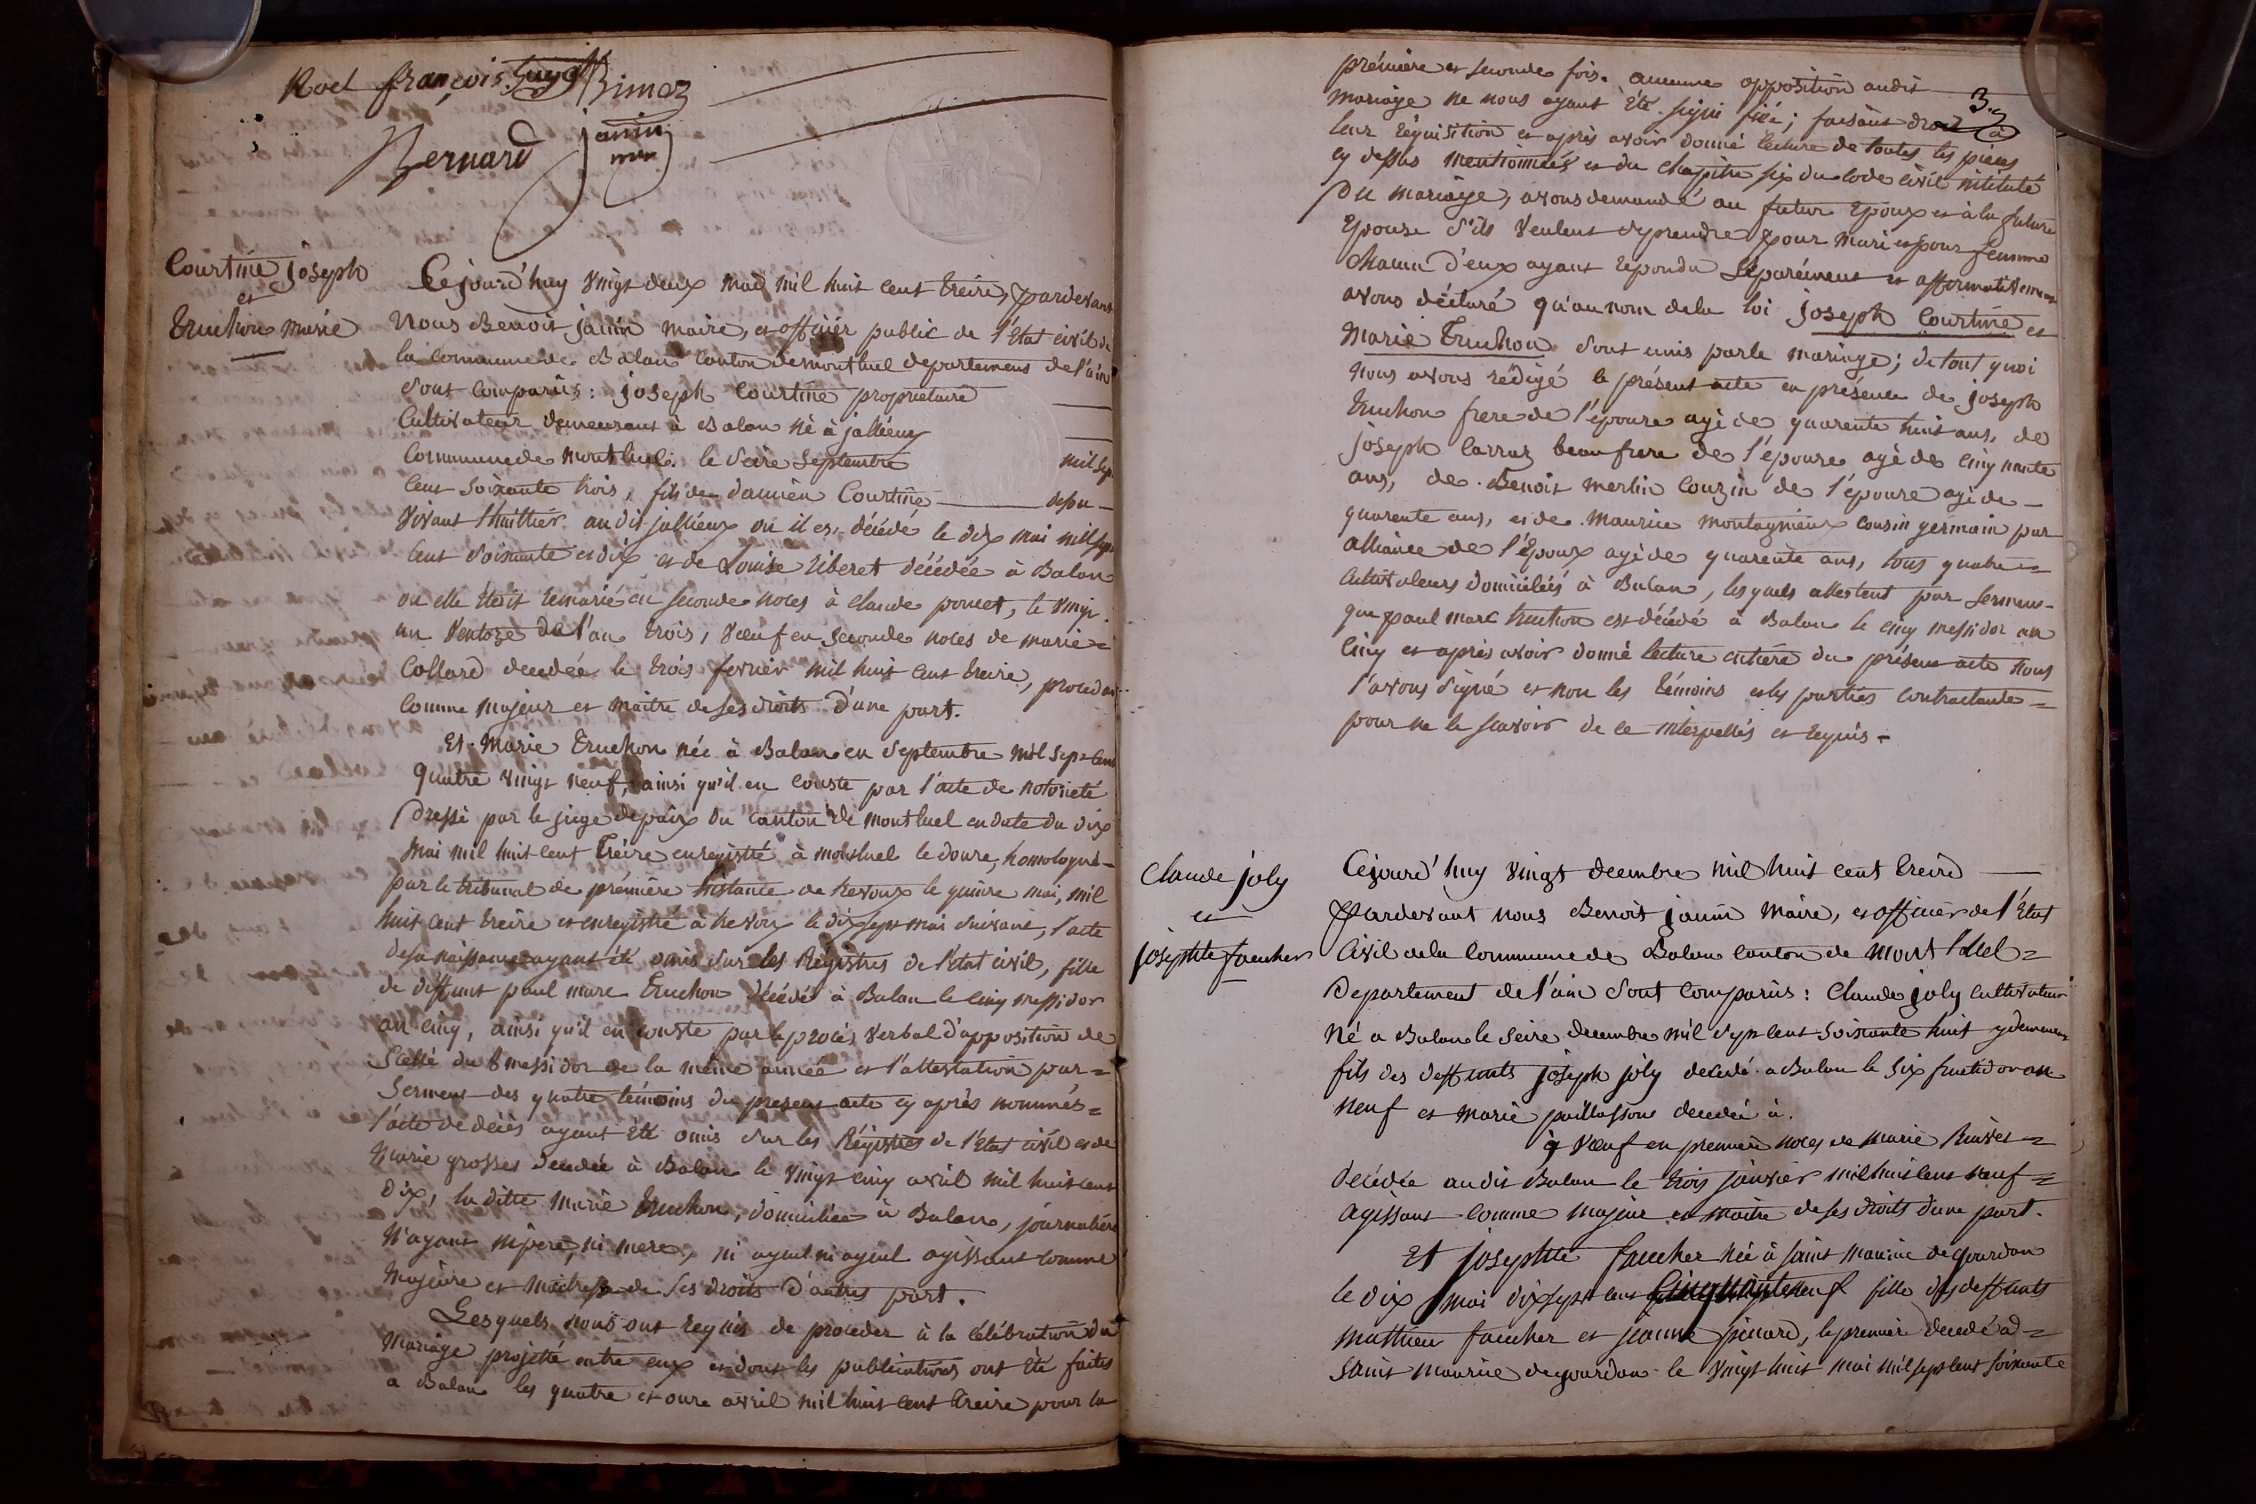 Roel françois Guyot Rimoz
Bernard janin
mre
Courtine joseph
et
Truchon marie
Cejourd'huy vingt deux mai mil huit cent treize, pardevant
Nous Benoit janin maire, et officier public de l'Etat civil de
la Commune de Balan Canton de montluel departement de l'ain
sont comparus: joseph Courtine propriétaire
Cultivateur demeurant à Balan né à jallieux
Commune de montluel le seize septembre mil sept
Cent soixante trois, fils de damien Courtine defun
Vivant audit jallieux où il est décédé le dix mai mil sept
Cent soixante et dix et de Louise Riberet décédée à Balan
où elle étoit remarié en seconde noces à Claude poncet, le vingt
un Ventoze de l'an trois, veuf en seconde noces de marie =
Collard decedée le trois fevrier mil huit cent treize, procedant
Comme majeur et maitre de ses droits d'une part.
Et marie Truchon née à Balan en septembre mil sept cent
quatre vingt neuf, ainsi qu'il en conste par l'acte de notorieté
Dressé par le juge de paix du canton de montluel en date du dix
Mai mil huit cent treize enregistré à montluel le douze, homologué
par le tribunal de première instance de trevoux le quinze mai, mil
huit cent treize et enregistré à trevoux le dix sept mai suivant, l'acte
de sa naissance ayant été omis sur les Régistres de l'état civil, fille
de deffunt paul marc Truchon décédé à Balan le cinq messidor
an cinq, ainsi qu'il en conste par le procès verbal d'apposition de
Scellé du 6 messidor de la même année et l'attestation par =
Serment des quatre témoins du present acte cy après nommés =
l'acte de décès ayant été omis sur les Régistres de l'Etat civil et de
Marie grosses decedée à Balan le vingt cinq avril mil huit cent
dix, la ditte marie Truchon, domiciliée à Balan, journalière
N'ayant ni père, ni mere, ni ayeul ni ayeul agissant comme
Majeure et maitresse de ses droits d'autres part.
Lesquels nous ont requis de proceder à la célébration du
Mariage projetté entre eux et dont les publications ont été faites
a Balan les quatre et onze avril mil huit cent treize pour la
3.
première et seconde fois. aucunne opposition audit
mariage ne nous ayant été signifiée; faisant droit à
leur réquisition et après avoir donné lecture de toutes les pièces
cy dessus mentionnées et du chapitre six du code civil intitulé
Du mariage, avons demandé au futur Epoux et à la future
Epouse s'ils veulent se prendre pour mari et pour femme
chacun d'eux ayant repondu séparément et affirmativement
avons déclaré qu'au nom de la loi joseph Courtine et
Marie Truchon sont unis par le mariage; de tout quoi
Nous avons rédigé le présent acte en présence de joseph
Truchon frere de l'épouse agé de quarente huit ans, de
joseph Carraz beaufrere de l'épouse agé de cinquante
ans, de Benoit merlin Couzin de l'épouse agé de
quarente ans, et de maurice montagnieux cousin germain par
alliance de l'Epoux agé de quarente ans, tous quatre =
Cultivateurs domiciliés à Balan, lesquels attestent par serment
que paul marc truchon est décédé à Balan le cinq messidor an
Cinq et après avoir donné lecture entière du présent acte nous
l'avons signé et non les témoins et les parties contractante =
pour ne le scavoir de ce interpellés et requis.
Claude joly
et
josephte faucher
Cejourd'huy vingt decembre mil huit cent treize
Pardevant nous Benoit janin maire, et officier de l'Etat
Civil de la Commune de Balan Canton de Montluel =
Departement de l'ain sont comparus: Claude joly cultivateur
Né a Balan le seize decembre mil sept cent soixante huit y demeurant
fils des deffunts joseph joly decedé a Balan le six fructidor an
Neuf et marie paillasson decedée à.
Veuf en première noces de marie =
décédée audit Balan le trois janvier mil huit cent neuf =
Agissant comme majeur et maitre de ses droits dune part.
Et josephte faucher née à saint maurice de gourdan
le dix mai dix sept cent cinquanteneuf fille des deffunts
mathieu faucher et jeanne pinard, le premier decedé ad =
Saint maurice de gourdan le vingt huit mai mil sept cent soixante